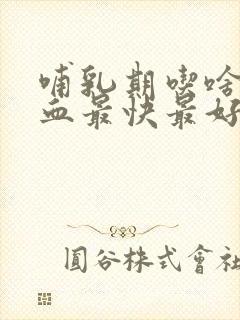 哺乳期喫啥
血最快最好
圓谷株式會社